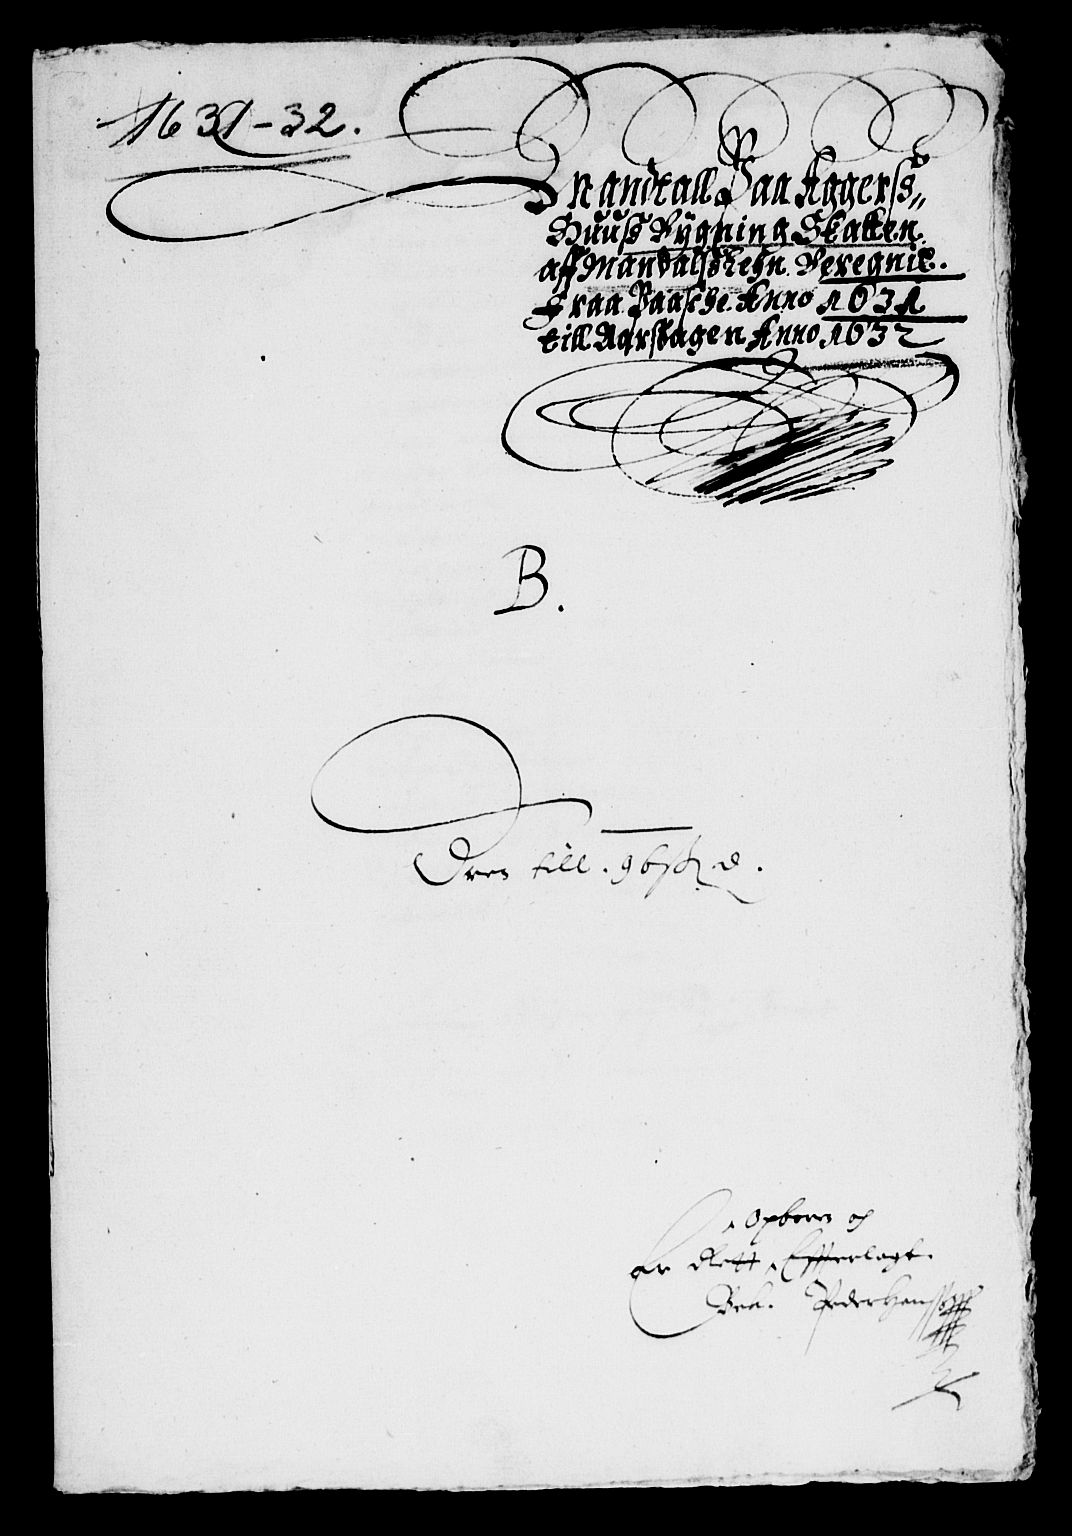 1631-32.
Mandtall Paa Aggersz,,
Huusz Bygning Skatten.
aff Mandalsz Lehn. Beregnit.
Fraa Paasche Anno 1631
till Aarsdagen Anno 1632
B.
till . 96
Opboren og
er Rett Effterlagt.
Peder Hanssø